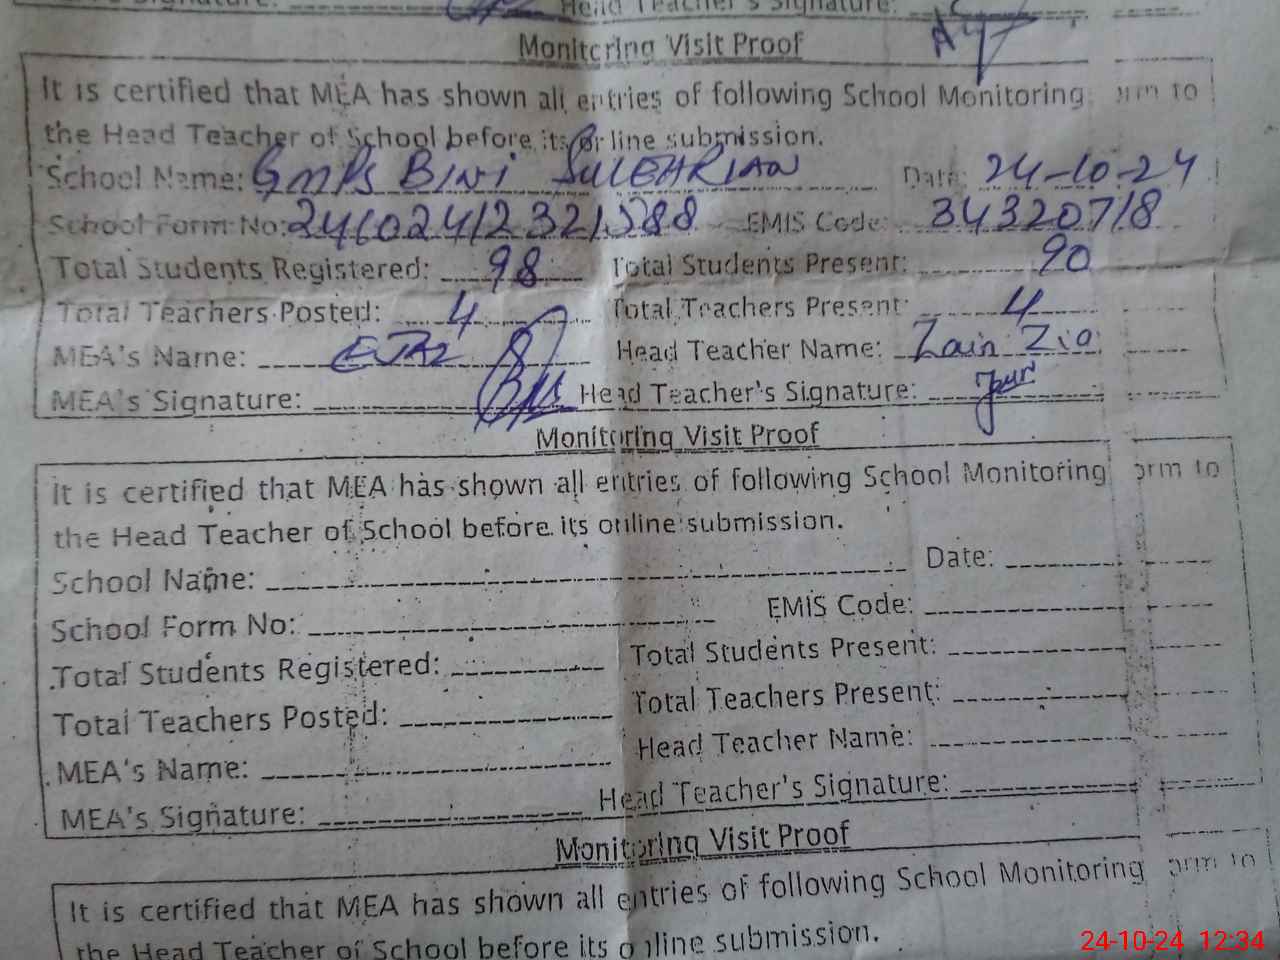 Head Teacher's Signature:
Monitoring Visit Proof
It is certified that MEA has shown all entries of following School Monitoring orm to
the Head Teacher of School before its online submission.
School Name: GMPS BINI SULEHRIAN Date: 24-10-24
School Form No: EMIS Code: 34320718
Total Students Registered: 98 Total Students Present: 90
Total Teachers Posted: 4 Total Teachers Present: 4
MEA's Name: EJAZ Head Teacher Name: Zain Zia
MEA's Signature: Head Teacher's Signature:
Monitoring Visit Proof
It is certified that MEA has shown all entries of following School Monitoring orm to
the Head Teacher of School before its online submission.
School Name: Date:
School Form No: EMIS Code:
Total Students Registered: Total Students Present:
Total Teachers Posted: Total Teachers Present:
MEA's Name: Head Teacher Name:
MEA's Signature: Head Teacher's Signature:
Monitoring Visit Proof
It is certified that MEA has shown all entries of following School Monitoring orm to
the Head Teacher of School before its online submission.
24-10-24 12:34